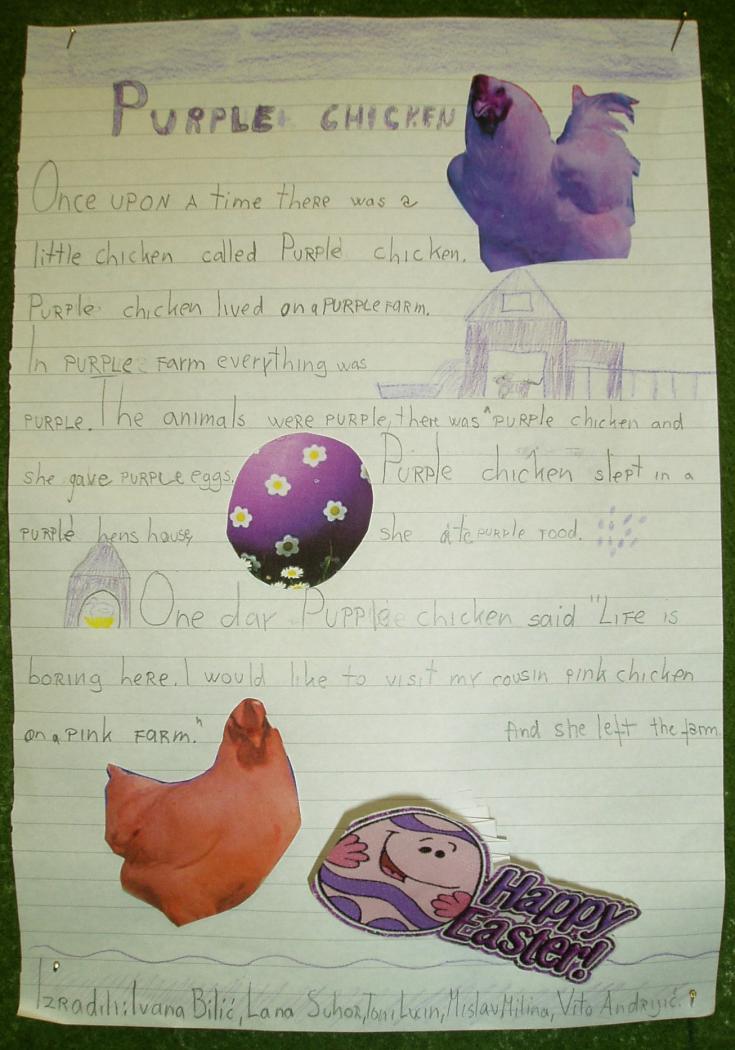 PURPLE CHICKEN
Once UPON A time there was a
little chicken called PURPLE chicken.
PURPLE chicken lived on a PURPLE FARM.
In PURPLE FARM everything was
PURPLE. The animals were PURPLE, there was a PURPLE chicken and
she gave PURPLE eggs. PURPLE chicken slept in a
PURPLE hens house, she ate PURPLE FOOD.
One day PUPPLE chicken said "LIFE is
boring here. I would like to visit my cousin pink chicken
on a PINK FARM." And she left the farm.
Happy
Easter!
Izradili: Ivana Bilić, Lana Suhor, Toni Lucin, Mislav Milina, Vito Andrijić.